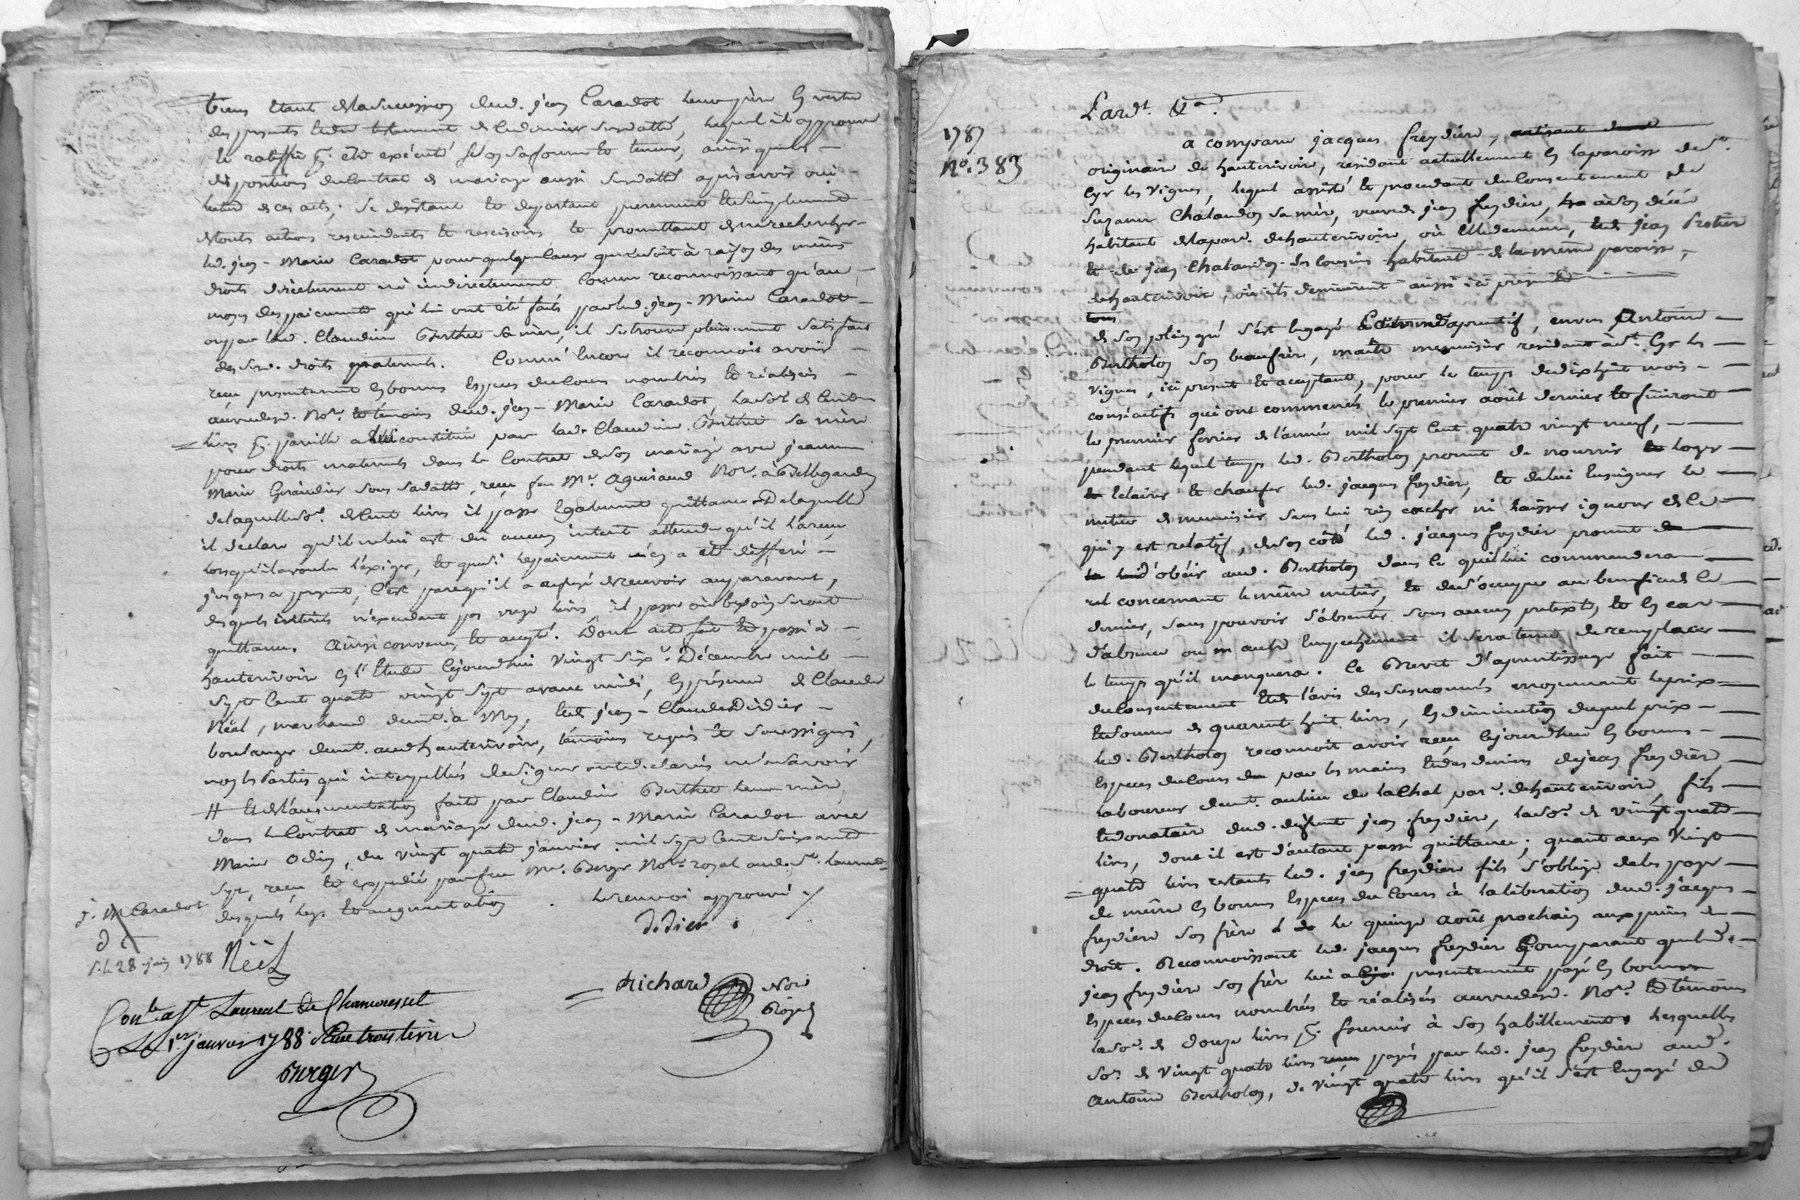 biens étant de la succession dud. jean Caradot leur père en vertu
des presents et du testament de ce dernier susdatté, lequel il approuve
et ratiffie pr. etre exécuté selon sa forme et teneur, ainsi que les
dispositions du Contrat de mariage aussi susdatté après avoir oui
lecture de ces actes, se desistant et departant purement et simplement
de touts actions rescindants et rescisoirs et promettant de ne rechercher
led. jean-Marie Caradot pour quelque cause que ce soit à raison des mêmes
droits directement ni indirectement comme reconnoissant qu'au
moyen des paiements qui lui ont été faits par led. jean-Marie Caradot
ou par lad. Claudine Berthet sa mère, il se trouve pleinement satisfait
de ses d. droits paternels. Comme encore il reconnois avoir
reçu presentement en bonnes Especes du Cours nombrés et réalisés
au vu desd. Nore. et témoins dud. jean-Marie Caradot la so. de Cent
livres pr. pareille a lui constituée par lad. Claudine Berthet sa mère
pour droits maternels dans le Contrat de son mariage avec jeanne
Marie Giraudier sous sa datte, reçu feu Me. Aguiraud Nore. à Bellegarde
de laquelle so. de Cent livres il passe Egalement quittance. De laquelle
il declare qu'il ne lui est du aucun interet attendu qu'il l'a reçu
lorsqu'il a voulu l'exiger, et que si le paiement n'en a été differé
jusques a present, c'est parcequ'il a refusé de recevoir auparavant,
desquels intérêts n'excedant pas onze livres, il passe où besoin seroit
quittance. Ainsi convenu et accepté. Dont acte fait et passé à
hauterivoir En l'Etude Cejourdhui vingt sixe. Décembre mil
sept Cent quatre vingt sept avant midi, En présence de Claude
Néel, marchand demt. à Mey, et de jean-Claude Didier
boulanger demt. aud. hauterivoire, témoins requis et soussignés,
non les Parties qui interpellés de signer ont déclarés ne savoir
# Et de l'augmentation faite par Claudine Berthet leur mère
dans le Contrat de mariage dud. jean-Marie Caradot avec
Marie Odin, du vingt quatre janvier mil sept Cent soixante
sept, reçu et expedié par feu Me. Berger Nore. royal aud. St. Laurent
desquels legs et augmentation. Le renvoi approuvé
j. M Caradot
d t
S. le 28 juin 1788
Néel
Didier
Richard Nore Royal
Contr. a St. Laurent De Chamousset
Le 1er janvier 1788 Reçu trois livres
Berger
Pardt. &a.
1787
No. 383
a comparu jacques freydière,
originaire de hauterivoire, residant actuellement En la paroisse de St.
Cyr les Vignes, lequel assisté et procedant du Consentement de
Suzanne Chalandon sa mère, veuve de jean freydier, à son décès
habitant de la par. de hauterivoire, où Elle demeure, et de jean Protier
et de jean Chalandon ses cousins habitant de la même paroisse,
de hauterivoir, où ils demeurent aussi ici présents
de son plein gré s'est Engagé Comme aprentif, envers Antoine
Bertholon son beaufrère, maître menuisier residant à St. Cyr les
Vignes, ici present et acceptant, pour le temps de dix huit mois
consecutifs qui ont commencés le premier août dernier et finiront
le premier fevrier de l'année mil sept Cent quatre vingt neuf,
pendant lequel temps led. Bertholon promet de nourrir loger
Eclairer et chaufer led. jacques freydier, et de lui Enseigner le
métier de menuisier sans lui rien cacher ni laisser ignorer de ce
qui y est relatif, de son côté led. jacques freydier promet
d'obéir aud. Bertholon dans ce qu'il lui commandera
et concernant le même métier, et de s'occuper au benefice de ce
dernier, sans pouvoir s'absenter sous aucun pretexte, et En cas
d'absence ou m autre Empechement il sera tenu de remplacer
le temps qu'il manquera. Ce Brevet d'aprentissage fait
du Consentement et de l'avis des susnommés moyennant le prix
et somme de quarente huit livres, En diminution duquel prix
led. Bertholon reconnoit avoir reçu Cejourdhui En bonnes
Especes du Cours par les mains et des deniers de jean freydière
laboureur demt. au lieu de la Chal par. de hauterivoire, fils
et donataire dud. defunt jean freydier, la so. de vingt quatre
livres, dont il est d'autant passé quittance; quant aux Vingt
quatre livres restants led. jean freydier fils s'oblige de les payer
de même En bonnes Especes du Cours à la liberation dud. jacques
freydière son frère le quinze août prochain aux peines de
droit. Reconnoissant led. jacques freydier Comparant que led.
jean freydier son frère lui a presentement payé En bonnes
Especes du Cours nombrés et réalisés au vu desd. Nore. et témoins
la so. de douze livres pr. fournir à son habillement, lesquelles
so. de vingt quatre livres payés par led. jean freydier aud.
Antoine Bertholon, de vingt quatre livres qu'il s'est Engagé de